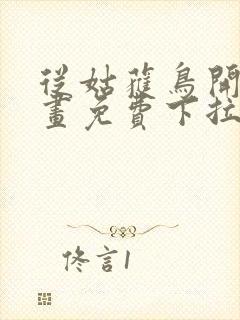 從姑蕥鳥開
畫免費下拉
佟言1